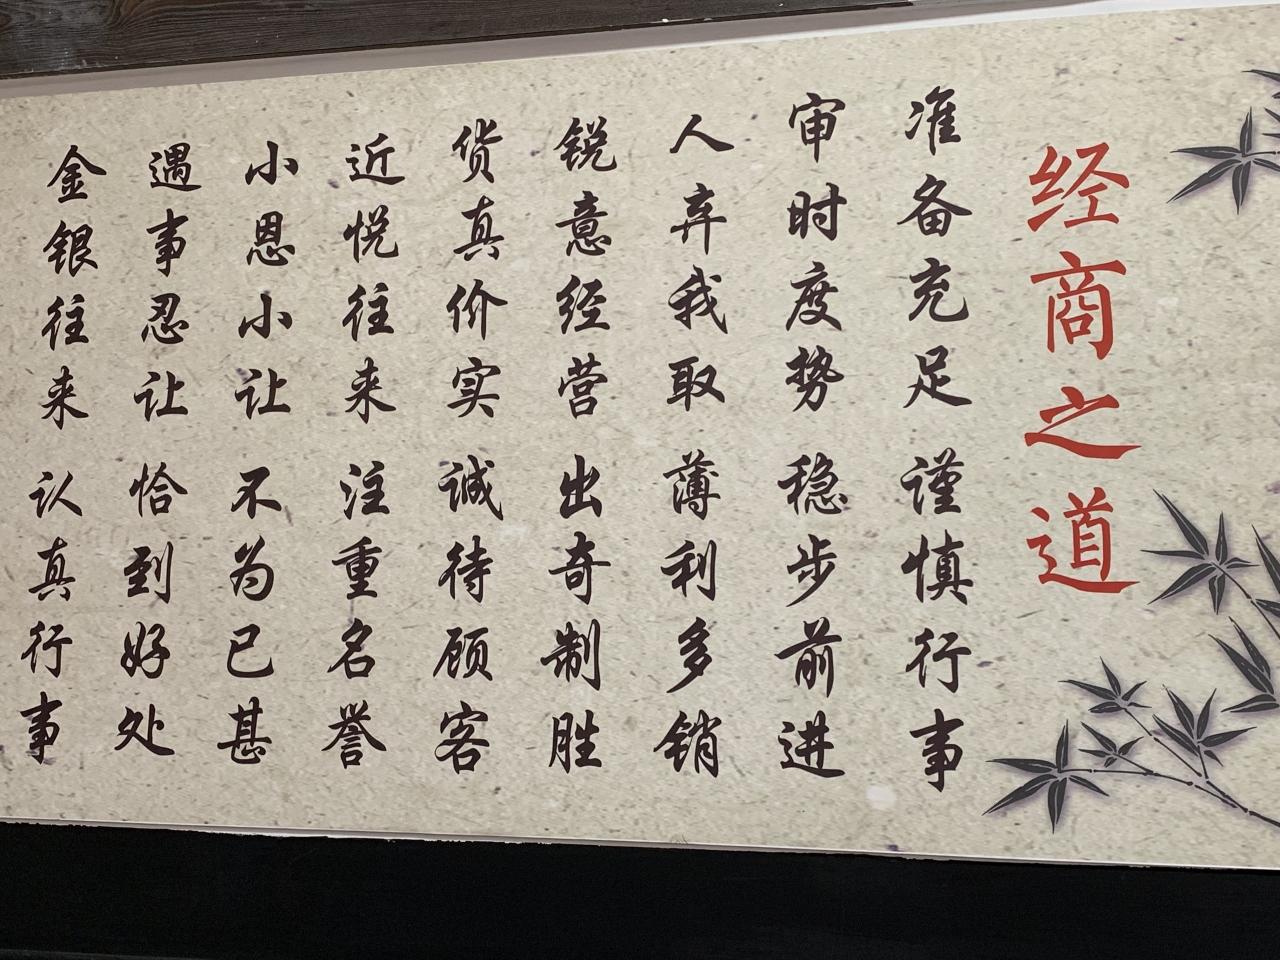 经商之道
准备充足 谨慎行事
审时度势 稳步前进
人弃我取 薄利多销
锐意经营 出奇制胜
货真价实 诚待顾客
近悦往来 注重名誉
小恩小让 不为已甚
遇事忍让 恰到好处
金银往来 认真行事